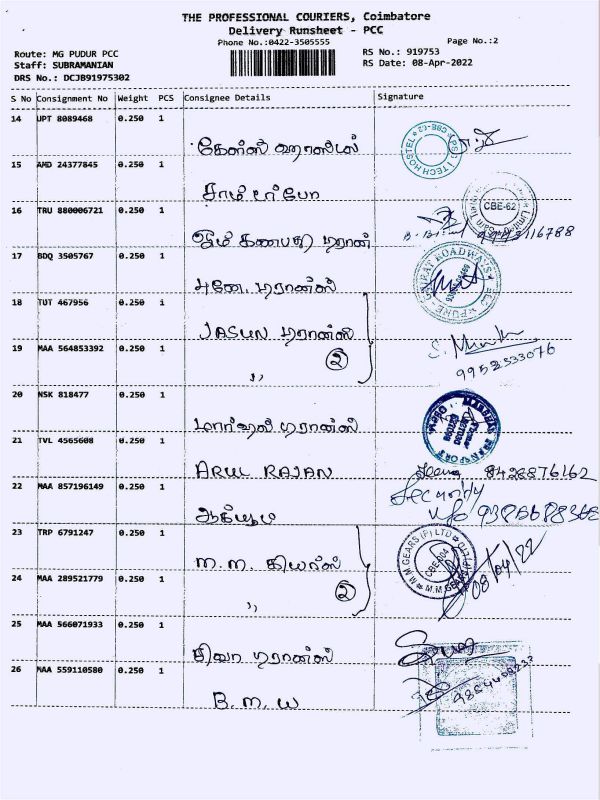 THE PROFESSIONAL COURIERS, Coimbatore
Delivery Runsheet - PCC
Phone No.:0422-3505555
Page No.:2
Route: MG PUDUR PCC
RS No.: 919753
Staff: SUBRAMANIAN
RS Date: 08-Apr-2022
DRS No.: DCJB91975302
S No Consignment No Weight PCS Consignee Details Signature
14 UPT 8089468 0.250 1
PSG I TECH HOSTEL CBE-62
15 AMD 24377845 0.250 1
16 TRU 880006721 0.250 1
CBE-62
ஓம் கணபதி டிரான்
17 BDQ 3505767 0.250 1
டிரான்ஸ்
18 TUT 467956 0.250 1
JASUN டிரான்ஸ்
19 MAA 564853392 0.250 1
,, 2
9952533076
20 NSK 818477 0.250 1
மார்ஷல் டிரான்ஸ்
21 TVL 4565608 0.250 1
ARUL RAJAN 8428876162
22 MAA 857196149 0.250 1
Security
23 TRP 6791247 0.250 1
M.M. கியர்ஸ்
M.M GEARS (P) LTD
08/04/22
24 MAA 289521779 0.250 1
,, 2
25 MAA 566071933 0.250 1
சிவா டிரான்ஸ்
26 MAA 559110580 0.250 1
B.M.W